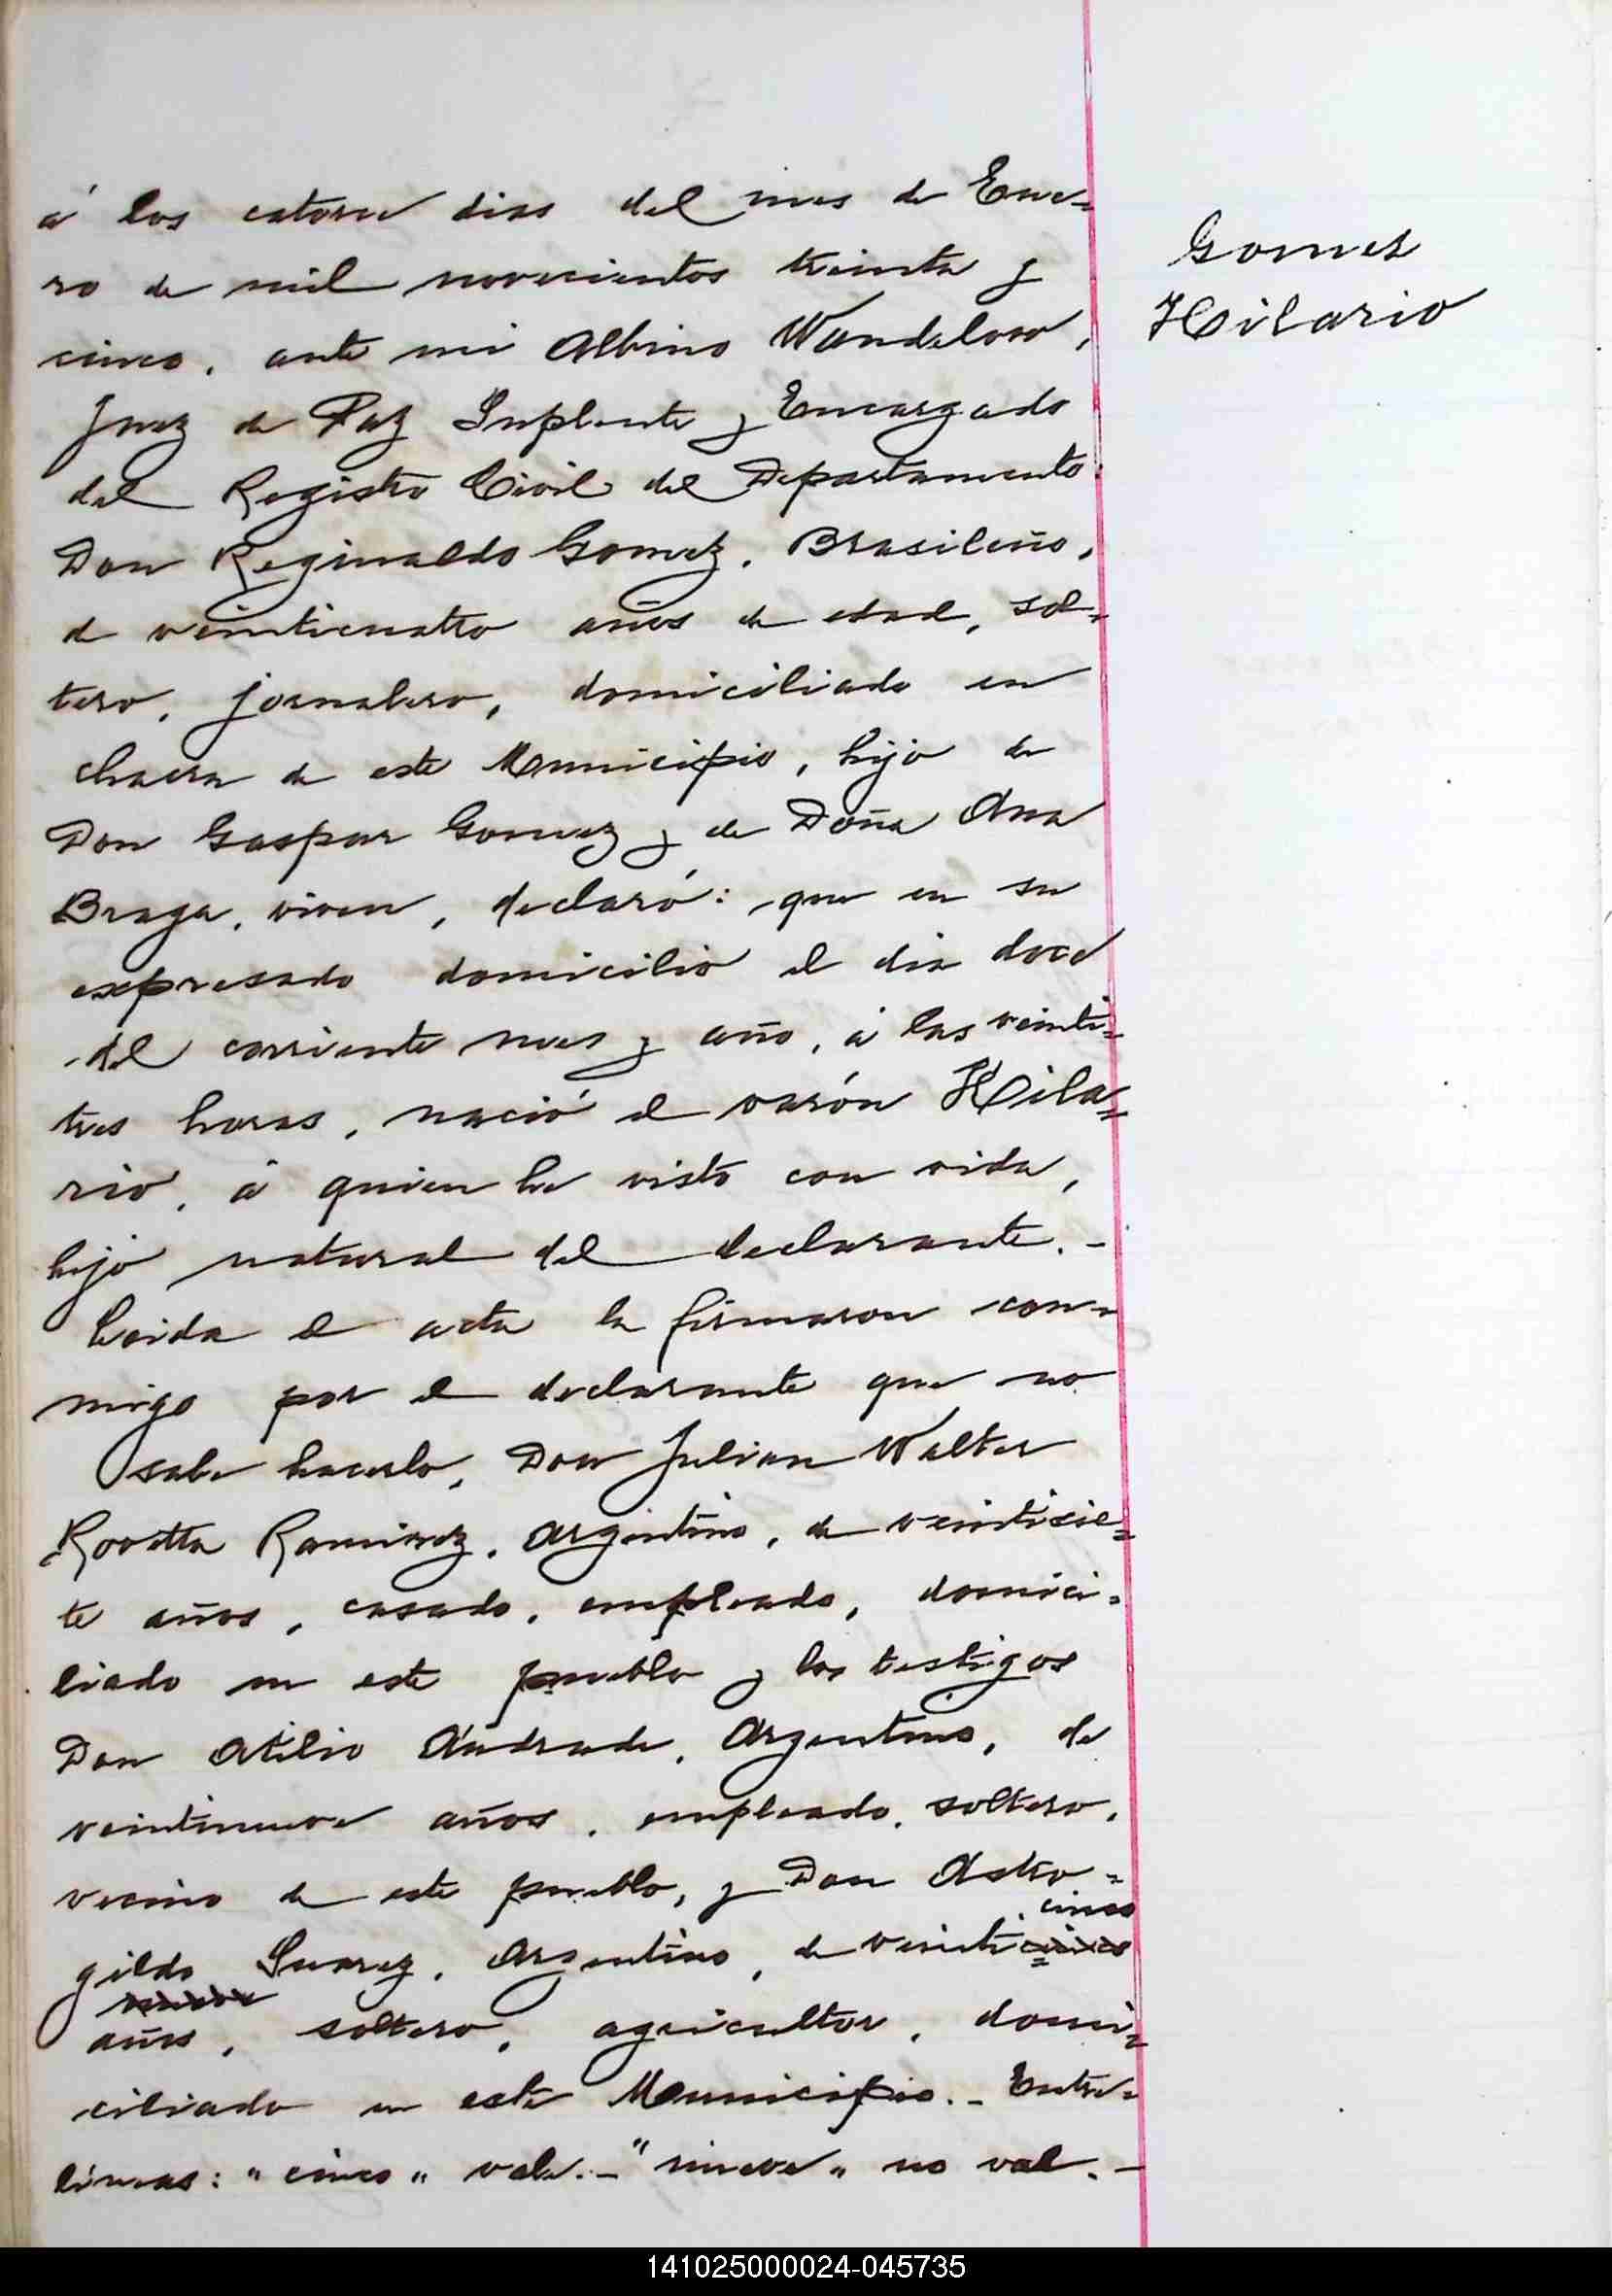 á los catorce dias del mes de Ene=
ro de mil novecientos treinta y
cinco, ante mi Albino Wandelow,
Juez de Paz Suplente y Encargado
del Registro Civil del Departamento
Don Reginaldo Gomez, Brasileño,
de veinticuatro años de edad, sol=
tero, jornalero, domiciliado en
chacra de este Municipio, hijo de
Don Gaspar Gomez y de Doña Ana
Braga, viven, declaró: que en su
expresado domicilio el dia doce
del corriente mes y año, á las veinti=
tres horas, nació el varón Hila=
rio, á quien he visto con vida,
hijo natural del declarante.-
Leida el acta la firmaron con=
migo por el declarante que no
sabe hacerlo, Don Julian Walter
Rovetta Ramirez, Argentino, de veintisie=
te años, casado, empleado, domici=
liado en este pueblo y los testigos
Don Atilio Andrade, Argentino, de
veintinueve años, empleado, soltero,
vecino de este pueblo, y Don Astro=
cinco
gildo Suarez, Argentino, de veinti
nueve
años, soltero, agricultor, domi=
ciliado en este Municipio.- Entre=
líneas: "cinco" vale.- "nueve" no vale.-
Gomez
Hilario
141025000024-045735